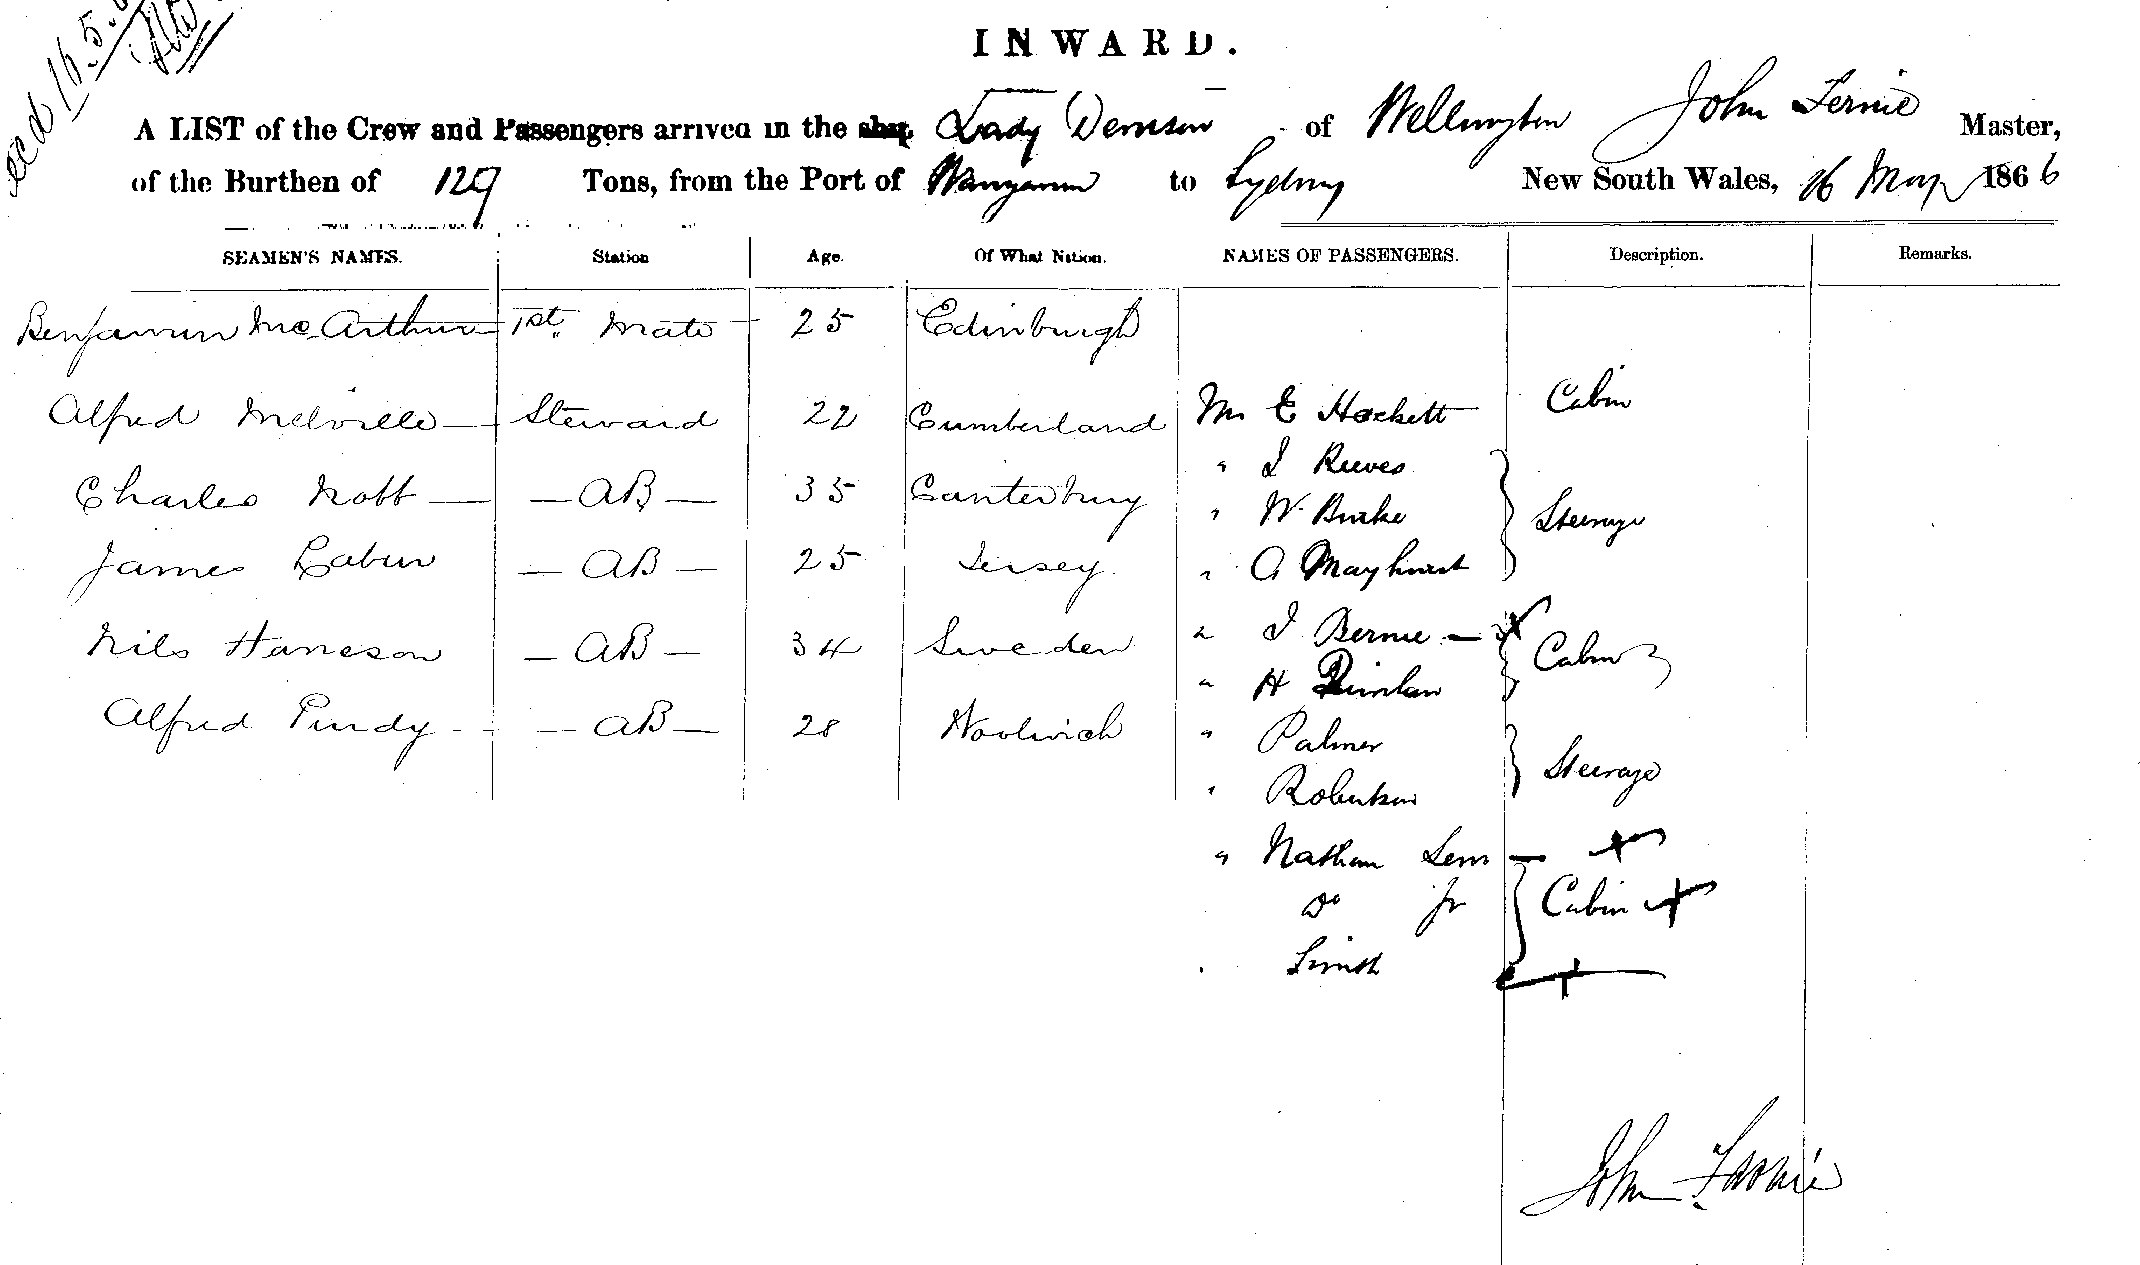 INWARD.
A LIST of the Crew and Passengers arrived in the ship Lady Denison of Wellington John Fernie Master,
of the Burthen of 129 Tons, from the Port of to Sydney New South Wales, 16 May 1866
SEAMEN'S NAMES. Station Age. Of What Nation. NAMES OF PASSENGERS. Description. Remarks.
Benjamin McArthur 1st Mate 25 Edinburgh
Alfred Melville Steward 22 Cumberland Mr E Hackett Cabin
" J Reeves
Charles Nott AB 35 Canterbury " W. Burke Steerage
James AB 25 Jersey " A Mayhurst
Nils Haneson AB 34 Sweden " J Bernie Cabin
" H
Alfred Purdy AB 28 Woolwich " Palmer Steerage
" Robertson
" Nathan Senr
Do Jr Cabin
" Smith
John Fernie